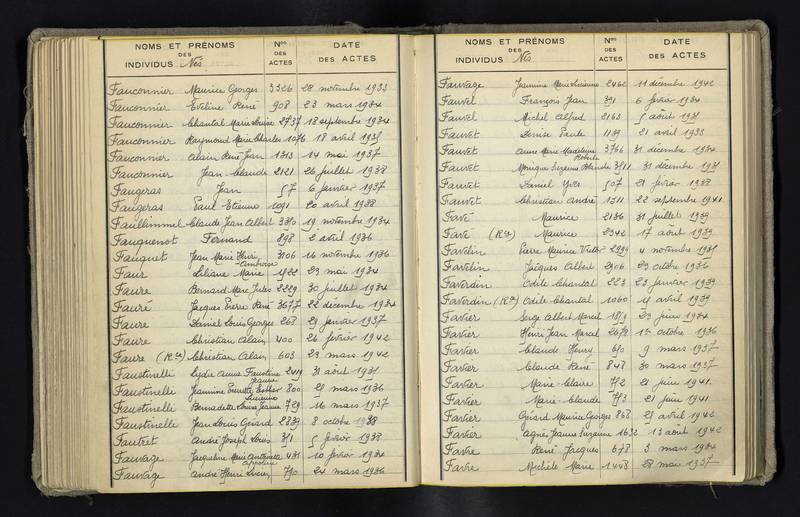 NOMS ET PRÉNOMS
DES
INDIVIDUS Nés
Nos
DES
ACTES
DATE
DES ACTES
Fauconnier Maurice Georges 3326 28 novembre 1933
Fauconnier Eveline René 908 23 mars 1934
Fauconnier Chantal Marie Louise 2737 18 septembre 1934
Fauconnier Raymond Marie Charles 1076 18 avril 1935
Fauconnier Alain René Jean 1313 14 mai 1937
Fauconnier Jean Claude 2121 26 juillet 1938
Faugeras Jean 57 6 janvier 1937
Faugeras Paul Etienne 1091 20 avril 1938
Faulhimmel Claude Jean Albert 3310 19 novembre 1934
Fauquenot Fernand 898 2 avril 1936
Fauquet Jean Marie Henri Ambroise 3106 16 novembre 1936
Faur Liliane Marie 1422 23 mai 1934
Faure Bernard Marc Jules 2229 30 juillet 1934
Fauré Jacques Pierre René 3677 22 décembre 1934
Faure Daniel Louis Georges 268 29 janvier 1937
Faure Christian Alain 400 26 février 1942
Faure (Rce) Christian Alain 603 23 mars 1942
Faustinelli Lydie Anna Faustine Jeanne 2419 31 août 1935
Faustinelli Jeannine Pierrette Esther Lucienne 800 21 mars 1936
Faustinelli Bernadette Louise Jeanne 729 16 mars 1937
Faustinelli Jean Louis Gérard 2839 8 octobre 1938
Fautret André Joseph Louis 351 5 février 1938
Fauvage Jacqueline Marie Antoinette Appoline 431 10 février 1934
Fauvage André Henri Lucien 790 24 mars 1936
NOMS ET PRÉNOMS
DES
INDIVIDUS Nés
Nos
DES
ACTES
DATE
DES ACTES
Fauvage Jeannine Marie Lucienne 2462 11 décembre 1942
Fauvel François Jean 391 6 février 1934
Fauvel Michel Alfred 2163 5 août 1935
Fauvet Denise Paule 1139 21 avril 1933
Fauvet Anne Marie Madeleine Roberte 3766 31 décembre 1934
Fauvet Monique Suzanne Blanche 3511 31 décembre 1935
Fauvet Daniel Yves 507 21 février 1938
Fauvet Christian André 1511 22 septembre 1941
Favé Maurice 2136 31 juillet 1939
Favé (Rce) Maurice 2342 17 août 1939
Favelin Pierre Maurice Victor 2999 4 novembre 1935
Favelin Jacques Albert 2906 23 octobre 1936
Faverdin Odile Chantal 223 23 janvier 1939
Faverdin (Rce) Odile Chantal 1060 15 avril 1939
Favier Serge Albert Marcel 1859 23 juin 1934
Favier Henri Jean Marcel 2678 1er octobre 1936
Favier Claude Henry 650 9 mars 1937
Favier Claude René 848 30 mars 1937
Favier Marie-Claire 752 21 juin 1941
Favier Marie-Claude 753 21 juin 1941
Favier Gérard Maurice Georges 868 23 avril 1942
Favier Agnès Jeanne Suzanne 1632 13 août 1942
Favre René Jacques 678 3 mars 1934
Favre Michèle Marie 1448 28 mai 1937